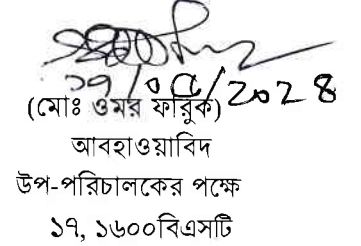 ১৭/০৫/২০২৪
(মোঃ ওমর ফারুক)
আবহাওয়াবিদ
উপ-পরিচালকের পক্ষে
১৭, ১৬০০বিএসটি